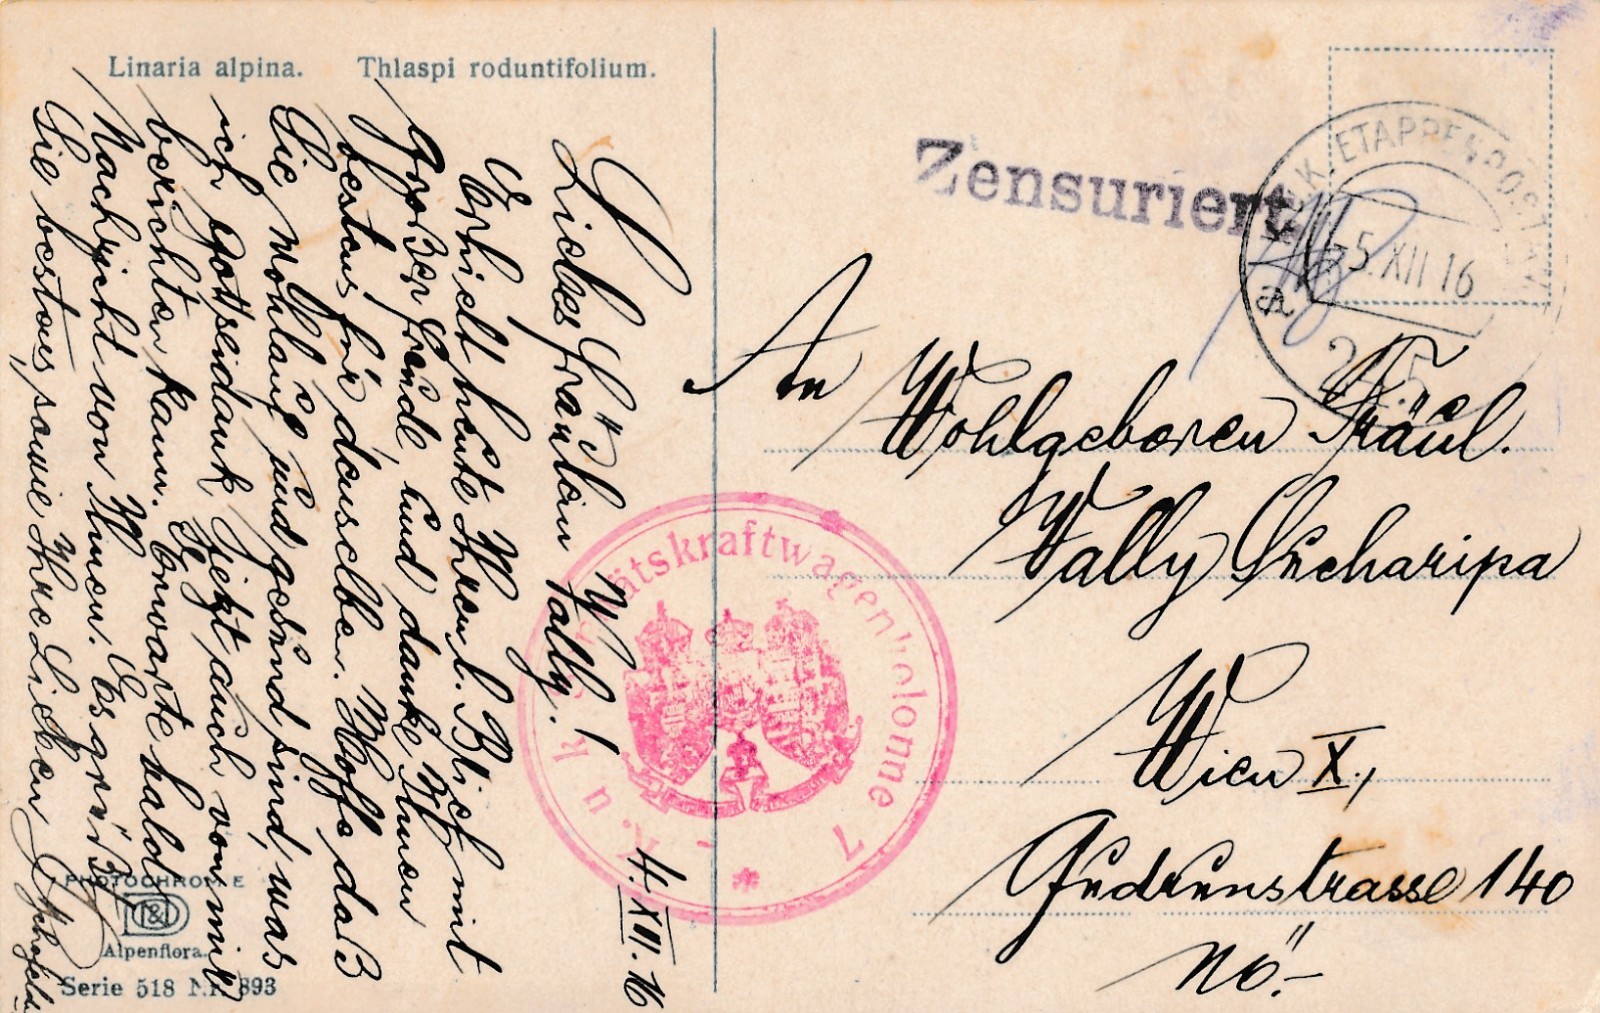 Linaria alpina. Thlaspi roduntifolium.
4.XII.16
Liebes Fräulein Wally!
Erhielt heute Ihren l. Brief mit
großer Freude, und danke Ihnen
bestens für denselben. Hoffe daß
Sie wohlauf und gesund sind, was
ich Gottseidank jetzt auch von mir
berichten kann. Erwarte baldigst
Nachricht von Ihnen. Es grüßt
Sie bestens, sowie Ihre Lieben
PHOTOCHROMIE
Alpenflora.
Serie 518 Nr. 893
Zensuriert
K.K. ETAPPENPOSTAMT
5.XII 16
a
K. u. k. Sanitätskraftwagenkolonne 7
An
Wohlgeboren Fräul.
Wally Sucharipa
Wien X.,
Gudrunstrasse 140
NÖ.-